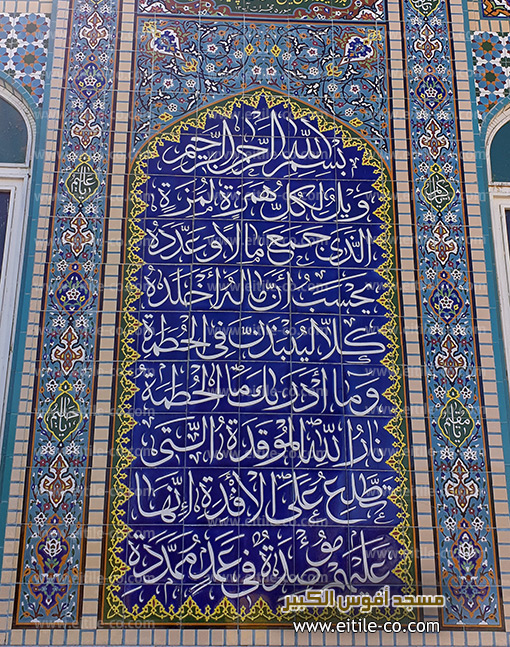 بسم الله الرحمن الرحيم
ويل لكل همزة لمزة
الذي جمع مالا وعدده
يحسب أن ماله أخلده
كلا لينبذن في الحطمة
وما أدراك ما الحطمة
نار الله الموقدة التي
تطلع على الأفئدة إنها
عليهم مؤصدة في عمد ممددة
مسجد أفوس الكبير
www.eitile-co.com